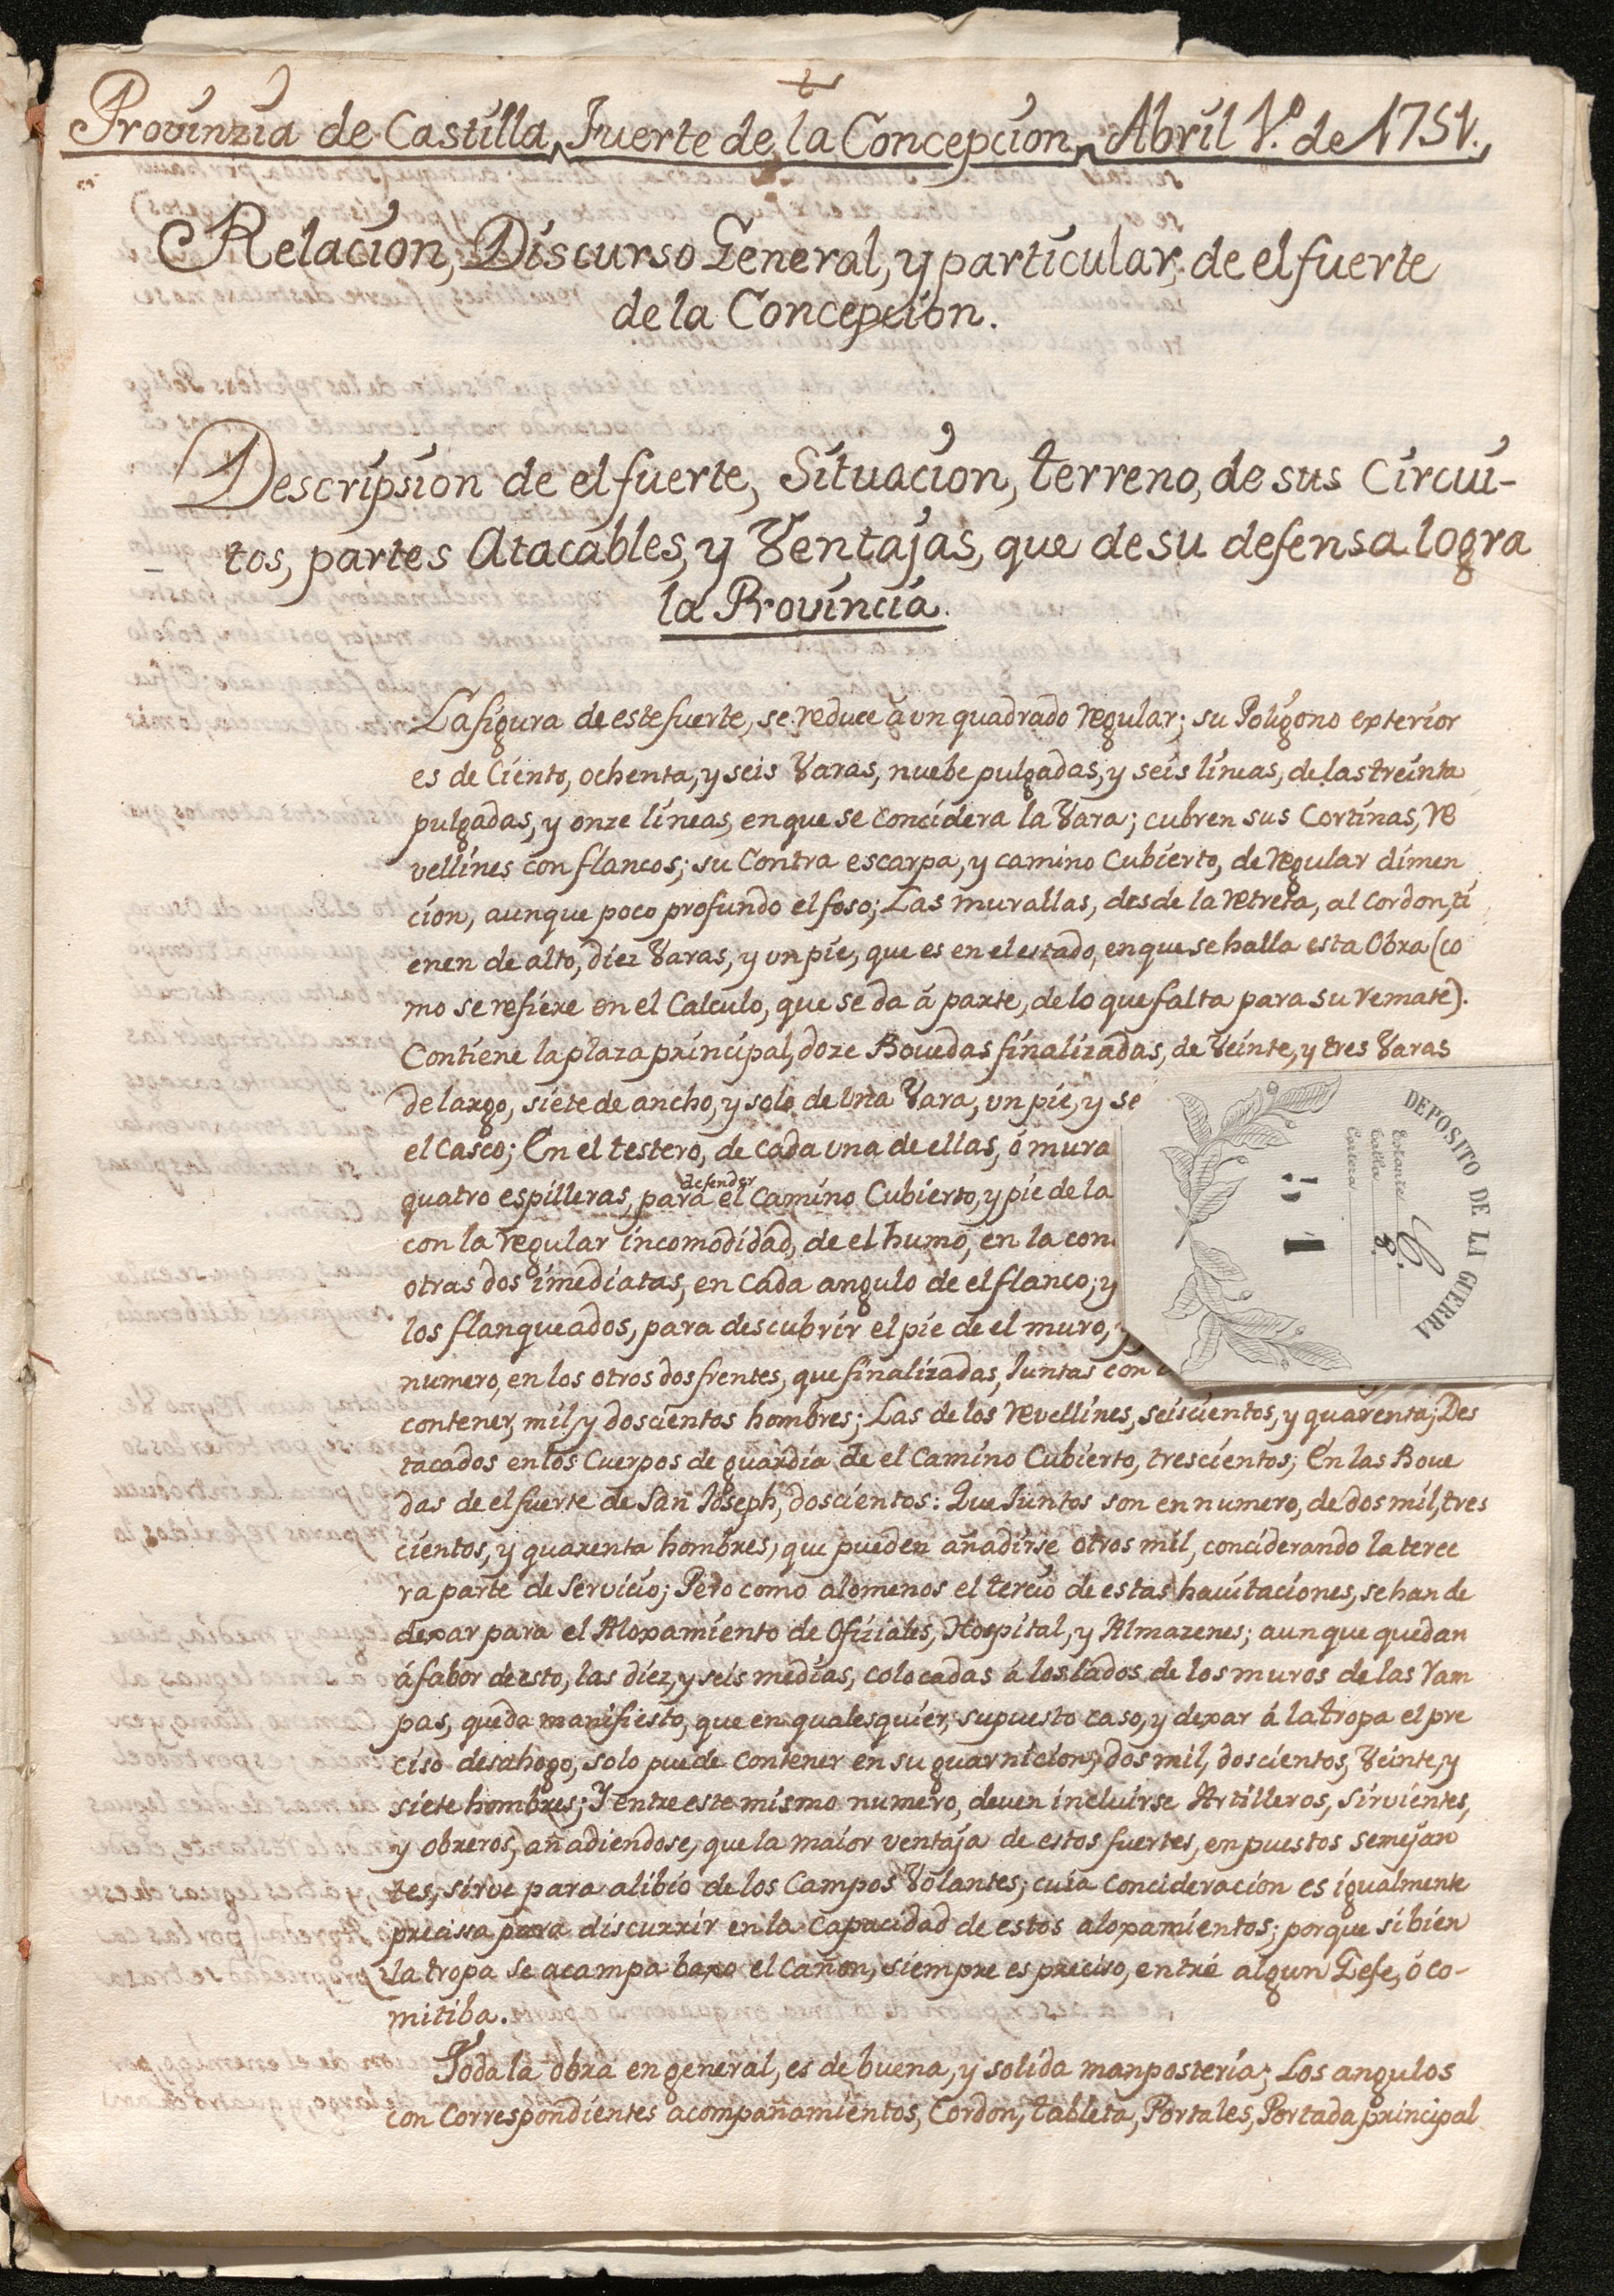 Provinzia de Castilla, Fuerte de la Concepcion, Abril 1.º de 1751.
Relacion, Discurso General, y particular, de el fuerte
de la Concepcion.
Descripsion de el fuerte, Situacion, terreno, de sus Circui-
tos, partes Atacables, y Ventajas, que de su defensa logra
la Provincia.
La figura de este fuerte, se reduce à un quadrado regular; su Poligono exterior
es de Ciento, ochenta, y seis Varas, nuebe pulgadas, y seis lineas, de las treinta
pulgadas, y onze lineas, en que se concidera la Vara; cubren sus Cortinas, re
vellines con flancos; su Contra escarpa, y camino Cubierto, de regular dimen
cion, aunque poco profundo el foso; Las murallas, desde la retreta, al Cordon, ti
enen de alto, diez Varas, y un pie, que es en el estado, en que se halla esta Obra (co
mo se refiere en el Calculo, que se da á parte, de lo que falta para su remate).
Contiene la plaza principal, doze Bovedas finalizadas, de Veinte, y tres Varas
de largo, siete de ancho, y solo de una Vara, un pie, y se
el Casco; En el testero, de cada una de ellas, ó mura
quatro espilleras, para defender el Camino Cubierto, y pie de la
con la regular incomodidad, de el humo, en la con
otras dos imediatas, en cada angulo de el flanco; y
los flanqueados, para descubrir el pie de el muro, y
numero, en los otros dos frentes, que finalizadas, Juntas con
contener, mil, y doscientos hombres; Las de los revellines, seiscientos, y quarenta; Des
tacados en los Cuerpos de guardia de el Camino Cubierto, trescientos; En las Bove
das de el fuerte de San Joseph, doscientos: Que Juntos son en numero, de dos mil, tres
cientos, y quarenta hombres, que pueden añadirse otros mil, conciderando la terce
ra parte de Servicio; Pero como alomenos el tercio de estas havitaciones, se han de
dexar para el Aloxamiento de Ofiziales, Hospital, y Almazenes; aunque quedan
á fabor de esto, las diez, y seis medias, colocadas á los lados de los muros de las ram
pas, queda manifiesto, que en qualesquier, supuesto caso, y dexar á la tropa el pre
ciso desahogo, solo puede contener en su guarnicion, dos mil, doscientos, Veinte, y
siete hombres; Y entre este mismo numero, deven incluirse Artilleros, Sirvientes,
y obreros, añadiendose, que la maior ventaja de estos fuertes, en puestos semejan
tes, sirve para alibio de los Campos Volantes; cuia concideracion es igualmente
precissa para discurrir en la capacidad de estos aloxamientos; porque si bien
la tropa se acampa baxo el cañon, siempre es preciso, entre algun Gefe, ó co-
mitiba.
Toda la obra en general, es de buena, y solida manposteria; Los angulos
con Correspondientes acompañamientos, Cordon, tableta, Portales, Portada principal
DEPOSITO DE LA GUERRA
Estante C.
Tabla 8.
Cartera